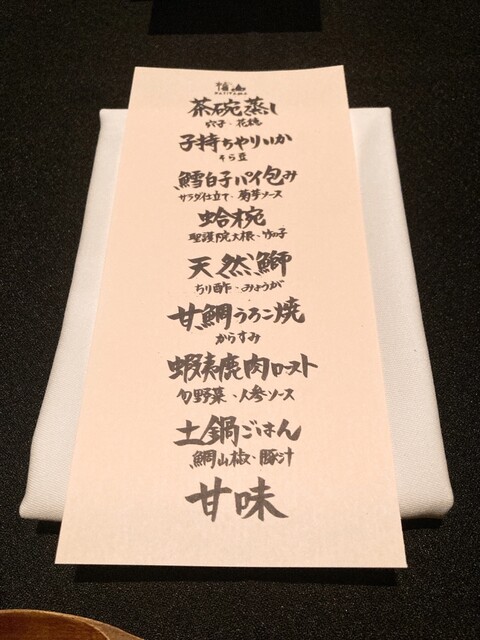 茶碗蒸し
穴子・花穂
子持ちやりいか
そら豆
鱈白子パイ包み
サラダ仕立て・菊芋ソース
蛤椀
聖護院大根・竹の子
天然鰤
ちり酢・みょうが
甘鯛うろこ焼
からすみ
蝦夷鹿肉ロースト
旬野菜・人参ソース
土鍋ごはん
鯛山椒・豚汁
甘味